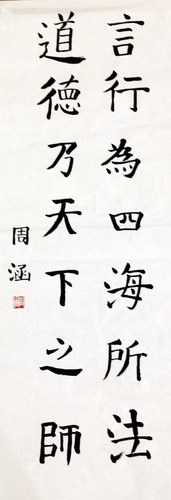 言行為四海所法
道德乃天下之師
周涵